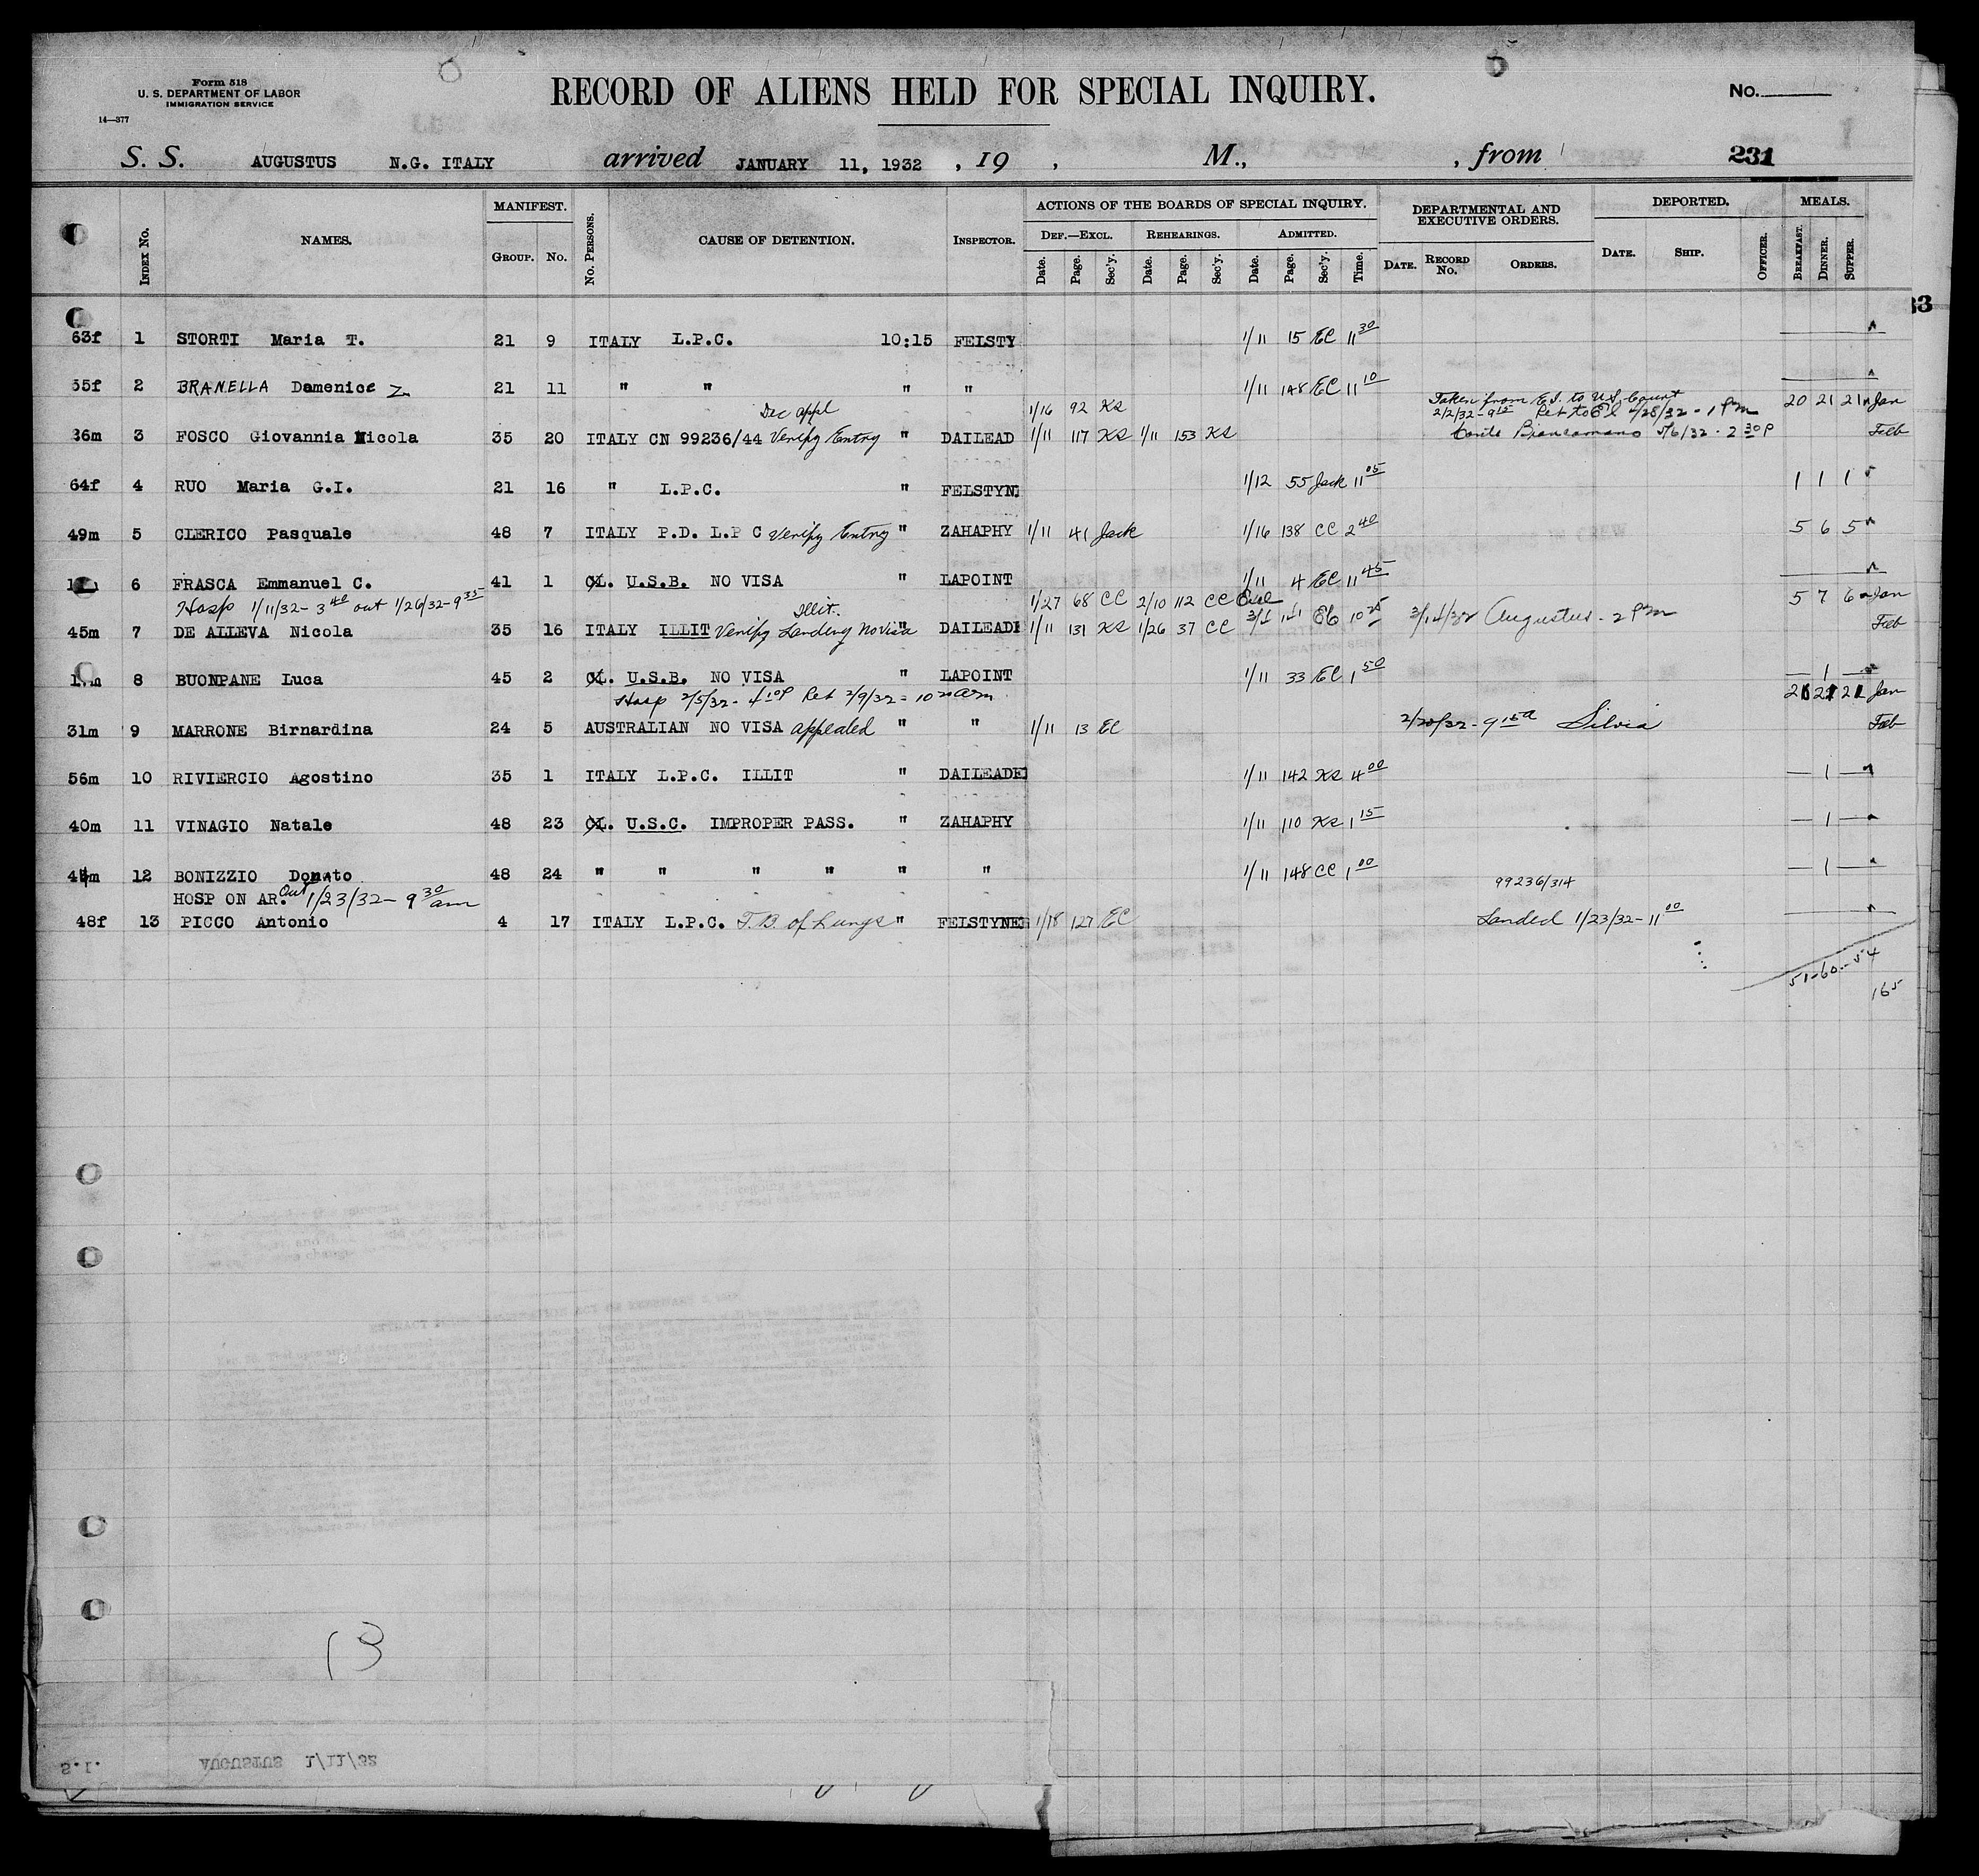 Form 518
U. S. DEPARTMENT OF LABOR
IMMIGRATION SERVICE
14—377
RECORD OF ALIENS HELD FOR SPECIAL INQUIRY.
No.
S. S. AUGUSTUS N.G. ITALY arrived JANUARY 11, 1932 , 19 , M., , from 231
INDEX No. NAMES. MANIFEST. GROUP. No. No. PERSONS. CAUSE OF DETENTION. INSPECTOR. ACTIONS OF THE BOARDS OF SPECIAL INQUIRY. DEF.—EXCL. Date. Page. Sec'y. REHEARINGS. Date. Page. Sec'y. ADMITTED. Date. Page. Sec'y. Time. DEPARTMENTAL AND EXECUTIVE ORDERS. DATE. RECORD No. ORDERS. DEPORTED. DATE. SHIP. OFFICER. MEALS. BREAKFAST. DINNER. SUPPER.
33
63f 1 STORTI Maria T. 21 9 ITALY L.P.C. 10:15 FELSTY 1/11 15 EC 11 30
55f 2 BRANELLA Damenice Z 21 11 " " " " 1/11 148 EC 11 10
Dec appl 1/16 92 KS Taken from E.I. to U.S. Court 20 21 21 Jan
2/2/32 - 9 15 Ret to EI 4/28/32 - 1 Pm
36m 3 FOSCO Giovannia Nicola 35 20 ITALY CN 99236/44 Verify Entry " DAILEAD 1/11 117 KS 1/11 153 KS Conte Biancamano 5/6/32 - 2 30 P Feb
64f 4 RUO Maria G.I. 21 16 " L.P.C. " FELSTYN 1/12 55 Jack 11 05 1 1 1
49m 5 CLERICO Pasquale 48 7 ITALY P.D. L.P C Verify Entry " ZAHAPHY 1/11 41 Jack 1/16 138 CC 2 40 5 6 5
6 FRASCA Emmanuel C. 41 1 CL. U.S.B. NO VISA " LAPOINT 1/11 4 EC 11 45
Hosp 1/11/32 - 3 40 out 1/26/32 - 9 35 Illit. 1/27 68 CC 2/10 112 CC Excl 5 7 6 Jan
45m 7 DE ALLEVA Nicola 35 16 ITALY ILLIT Verify Landing No Visa " DAILEADE 1/11 131 KS 1/26 37 CC 3/14/32 Augustus - 2 Pm Feb
8 BUONPANE Luca 45 2 CL. U.S.B. NO VISA " LAPOINT 1/11 33 EC 1 50 — 1 —
Hosp 2/5/32 - 4 10 P Ret 2/9/32 = 10 20 am 21 21 21 Jan
31m 9 MARRONE Birnardina 24 5 AUSTRALIAN NO VISA appealed " " 1/11 13 EC 2/20/32 - 9 15 a Silvia Feb
56m 10 RIVIERCIO Agostino 35 1 ITALY L.P.C. ILLIT " DAILEADE 1/11 142 KS 4 00 — 1 —
40m 11 VINAGIO Natale 48 23 CL. U.S.C. IMPROPER PASS. " ZAHAPHY 1/11 110 KS 1 15 — 1 —
12 BONIZZIO Donato 48 24 " " " " " " 1/11 148 CC 1 00 — 1 —
HOSP ON AR. Out 1/23/32 - 9 30 am 99236/314
48f 13 PICCO Antonio 4 17 ITALY L.P.C. T.B. of Lungs " FELSTYNE 1/18 127 EC Landed 1/23/32 - 11 00
51-60-54
165
13
S.I. AUGUSTUS 1/11/32